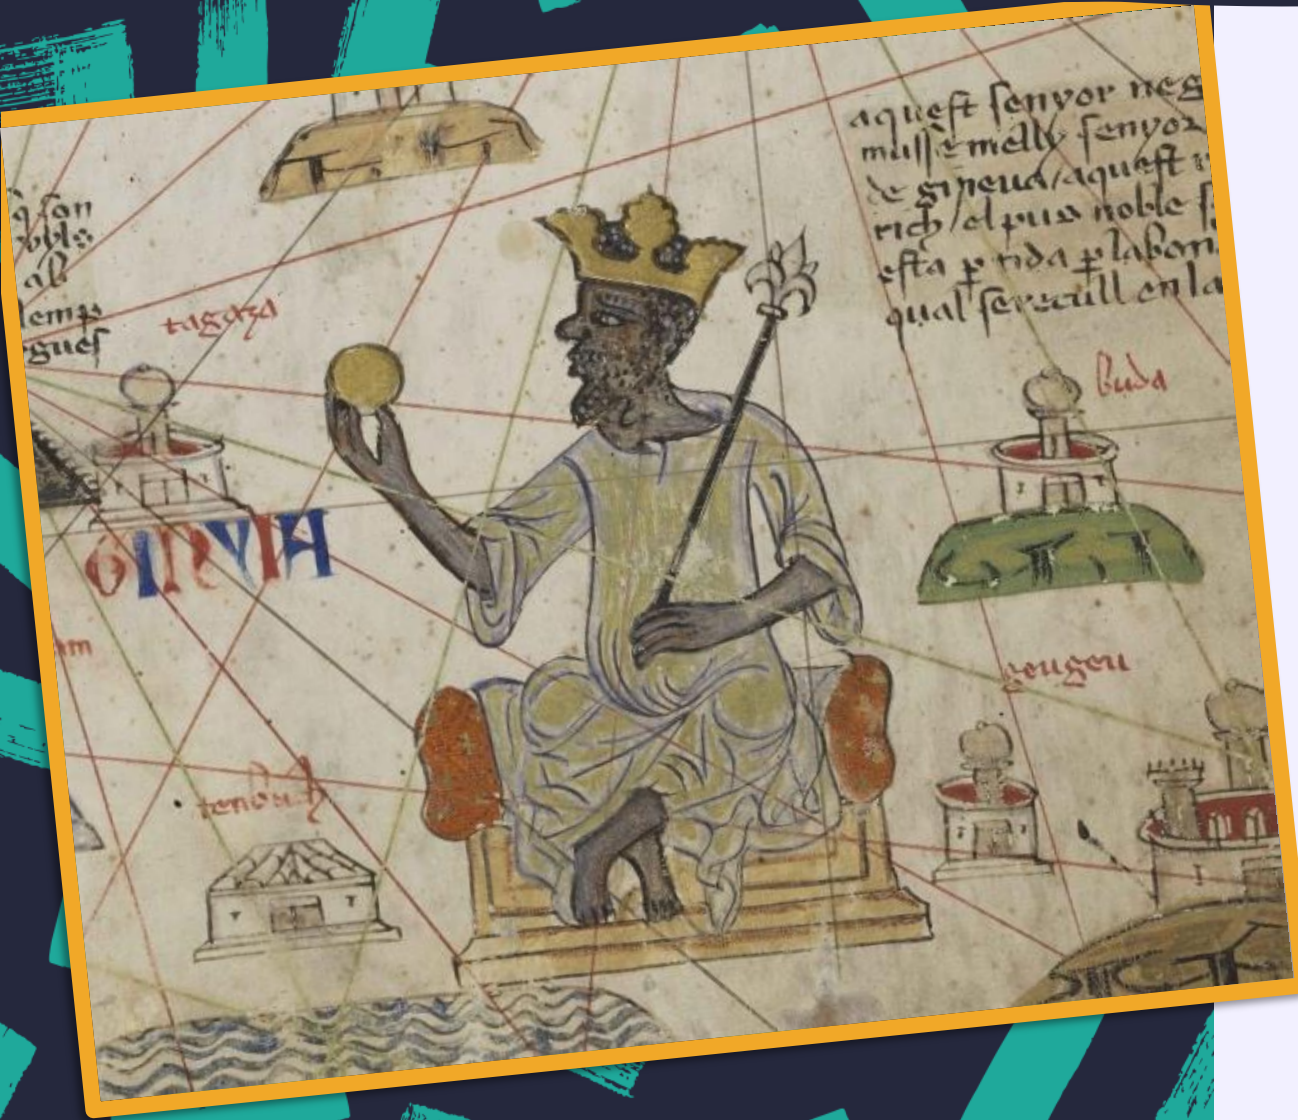 aquest senyor neg
musse melly senyor
de gineua/aquest
rich/el pus noble
esta ꝑtida ꝑ labon
qual se recull en la
q son
able
ab
lemp
gues
tagaza
buda
GINYIA
geugeu
tenbuch